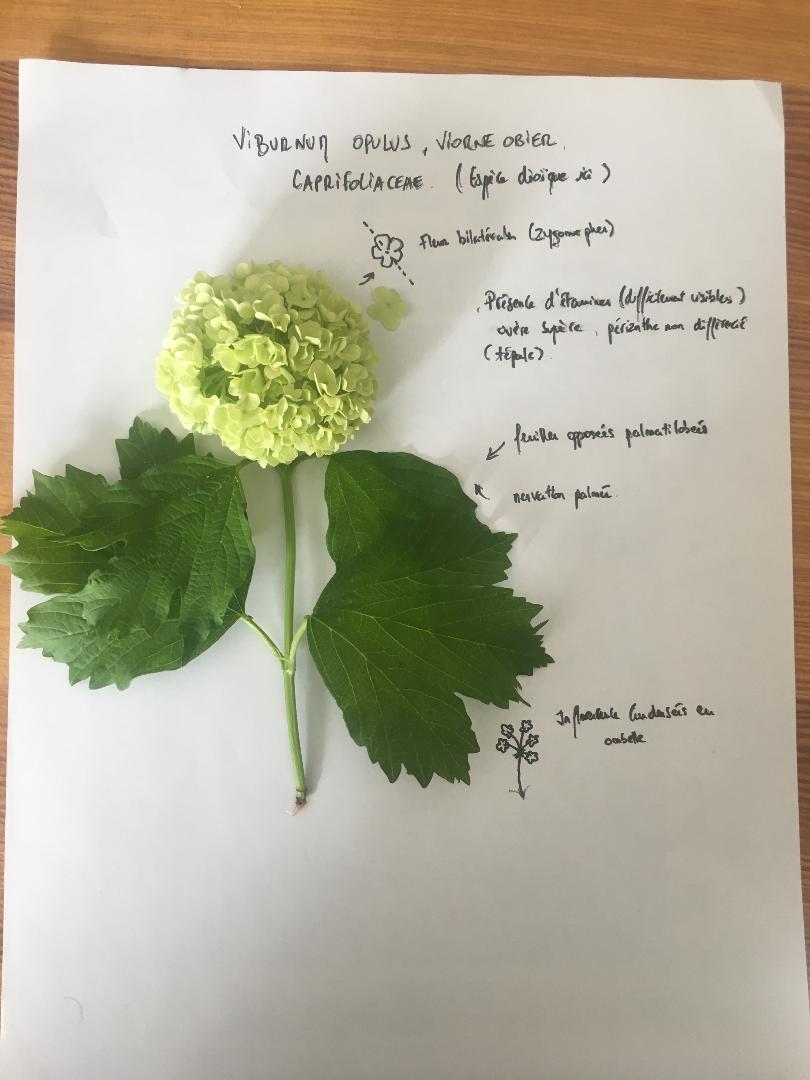 VIBURNUM OPULUS, VIORNE OBIER.
CAPRIFOLIACEAE. (Espèce dioïque ici)
Fleur bilatérales (zygomorphes)
. Présence d'étamines (difficilement visibles)
ovaire supère, périanthe non différencié
(tépale).
feuilles opposées palmatilobées
nervation palmée.
Inflorescence condensées en
ombelle